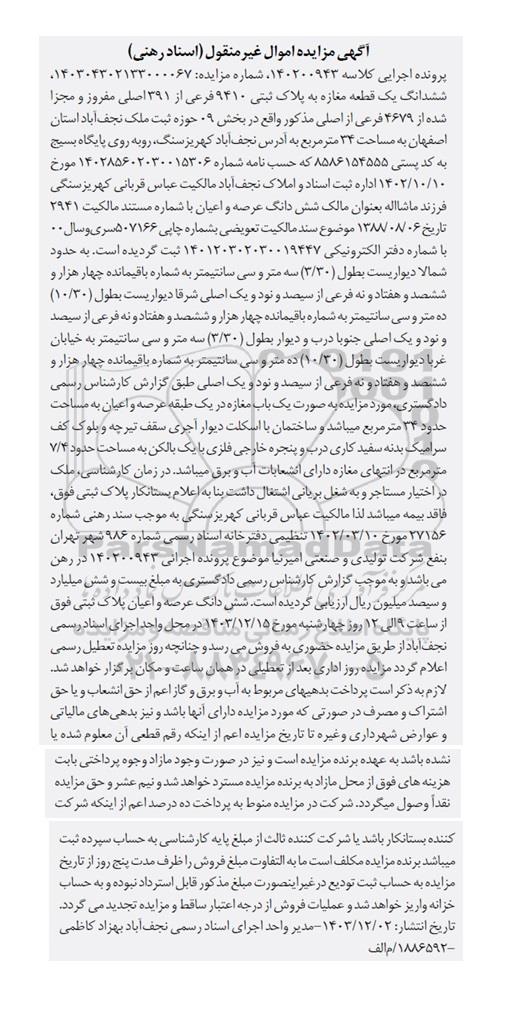 آگهی مزایده اموال غیر منقول (اسناد رهنی)
پرونده اجرایی کلاسه ۱۴۰۲۰۰۹۴۳، شماره مزایده: ۱۴۰۳۰۴۳۰۲۱۳۳۰۰۰۰۶۷،
ششدانگ یک قطعه مغازه به پلاک ثبتی ۹۴۱۰ فرعی از ۳۹۱ اصلی مفروز و مجزا
شده از ۴۶۷۹ فرعی از اصلی مذکور واقع در بخش ۰۹ حوزه ثبت ملک نجف‌آباد استان
اصفهان به مساحت ۳۴ مترمربع به آدرس نجف‌آباد کهریزسنگ، روبه روی پایگاه بسیج
به کد پستی ۸۵۸۶۱۵۴۵۵۵ که حسب نامه شماره ۱۴۰۲۸۵۶۰۲۰۳۰۰۱۵۳۰۶ مورخ
۱۴۰۲/۱۰/۱۰ اداره ثبت اسناد و املاک نجف‌آباد مالکیت عباس قربانی کهریزسنگی
فرزند ماشااله بعنوان مالک شش دانگ عرصه و اعیان با شماره مستند مالکیت ۲۹۴۱
تاریخ ۱۳۸۸/۰۸/۰۶ موضوع سند مالکیت تعویضی بشماره چاپی ۵۰۷۱۶۶سری‌وسال۰۰
با شماره دفتر الکترونیکی ۱۴۰۱۲۰۳۰۲۰۳۰۰۱۹۴۴۷ ثبت گردیده است. به حدود
شمالا دیواریست بطول (۳/۳۰) سه متر و سی سانتیمتر به شماره باقیمانده چهار هزار و
ششصد و هفتاد و نه فرعی از سیصد و نود و یک اصلی شرقا دیواریست بطول (۱۰/۳۰)
ده متر و سی سانتیمتر به شماره باقیمانده چهار هزار و ششصد و هفتاد و نه فرعی از سیصد
و نود و یک اصلی جنوبا درب و دیوار بطول (۳/۳۰) سه متر و سی سانتیمتر به خیابان
غربا دیواریست بطول (۱۰/۳۰) ده متر و سی سانتیمتر به شماره باقیمانده چهار هزار و
ششصد و هفتاد و نه فرعی از سیصد و نود و یک اصلی طبق گزارش کارشناس رسمی
دادگستری، مورد مزایده به صورت یک باب مغازه در یک طبقه عرصه و اعیان به مساحت
حدود ۳۴ متر مربع میباشد و ساختمان با اسکلت دیوار آجری سقف تیرچه و بلوک کف
سرامیک بدنه سفید کاری درب و پنجره خارجی فلزی با یک بالکن به مساحت حدود ۷/۴
مترمربع در انتهای مغازه دارای انشعابات آب و برق میباشد. در زمان کارشناسی، ملک
در اختیار مستاجر و به شغل بریانی اشتغال داشت بنا به اعلام بستانکار پلاک ثبتی فوق،
فاقد بیمه میباشد لذا مالکیت عباس قربانی کهریز سنگی به موجب سند رهنی شماره
۲۷۱۵۶ مورخ ۱۴۰۲/۰۳/۱۰ تنظیمی دفترخانه اسناد رسمی شماره ۹۸۶ شهر تهران
بنفع شرکت تولیدی و صنعتی امیرنیا موضوع پرونده اجرائی ۱۴۰۲۰۰۹۴۳ در رهن
می باشد و به موجب گزارش کارشناس رسمی دادگستری به مبلغ بیست و شش میلیارد
و سیصد میلیون ریال ارزیابی گردیده است. شش دانگ عرصه و اعیان پلاک ثبتی فوق
از ساعت ۹ الی ۱۲ روز چهارشنبه مورخ ۱۴۰۳/۱۲/۱۵ در محل واحد اجرای اسناد رسمی
نجف‌آباد از طریق مزایده حضوری به فروش می رسد و چنانچه روز مزایده تعطیل رسمی
اعلام گردد مزایده روز اداری بعد از تعطیلی در همان ساعت و مکان برگزار خواهد شد.
لازم به ذکر است پرداخت بدهیهای مربوط به آب و برق و گاز اعم از حق انشعاب و یا حق
اشتراک و مصرف در صورتی که مورد مزایده دارای آنها باشد و نیز بدهی‌های مالیاتی
و عوارض شهرداری و غیره تا تاریخ مزایده اعم از اینکه رقم قطعی آن معلوم شده یا
نشده باشد به عهده برنده مزایده است و نیز در صورت وجود مازاد وجوه پرداختی بابت
هزینه های فوق از محل مازاد به برنده مزایده مسترد خواهد شد و نیم عشر و حق مزایده
نقداً وصول میگردد. شرکت در مزایده منوط به پرداخت ده درصد اعم از اینکه شرکت
کننده بستانکار باشد یا شرکت کننده ثالث از مبلغ پایه کارشناسی به حساب سپرده ثبت
میباشد برنده مزایده مکلف است ما به التفاوت مبلغ فروش را ظرف مدت پنج روز از تاریخ
مزایده به حساب ثبت تودیع در غیر اینصورت مبلغ مذکور قابل استرداد نبوده و به حساب
خزانه واریز خواهد شد و عملیات فروش از درجه اعتبار ساقط و مزایده تجدید می گردد.
تاریخ انتشار: ۱۴۰۳/۱۲/۰۲-مدیر واحد اجرای اسناد رسمی نجف‌آباد بهزاد کاظمی
-۱۸۸۶۵۹۲/م‌الف
ParsNamadData